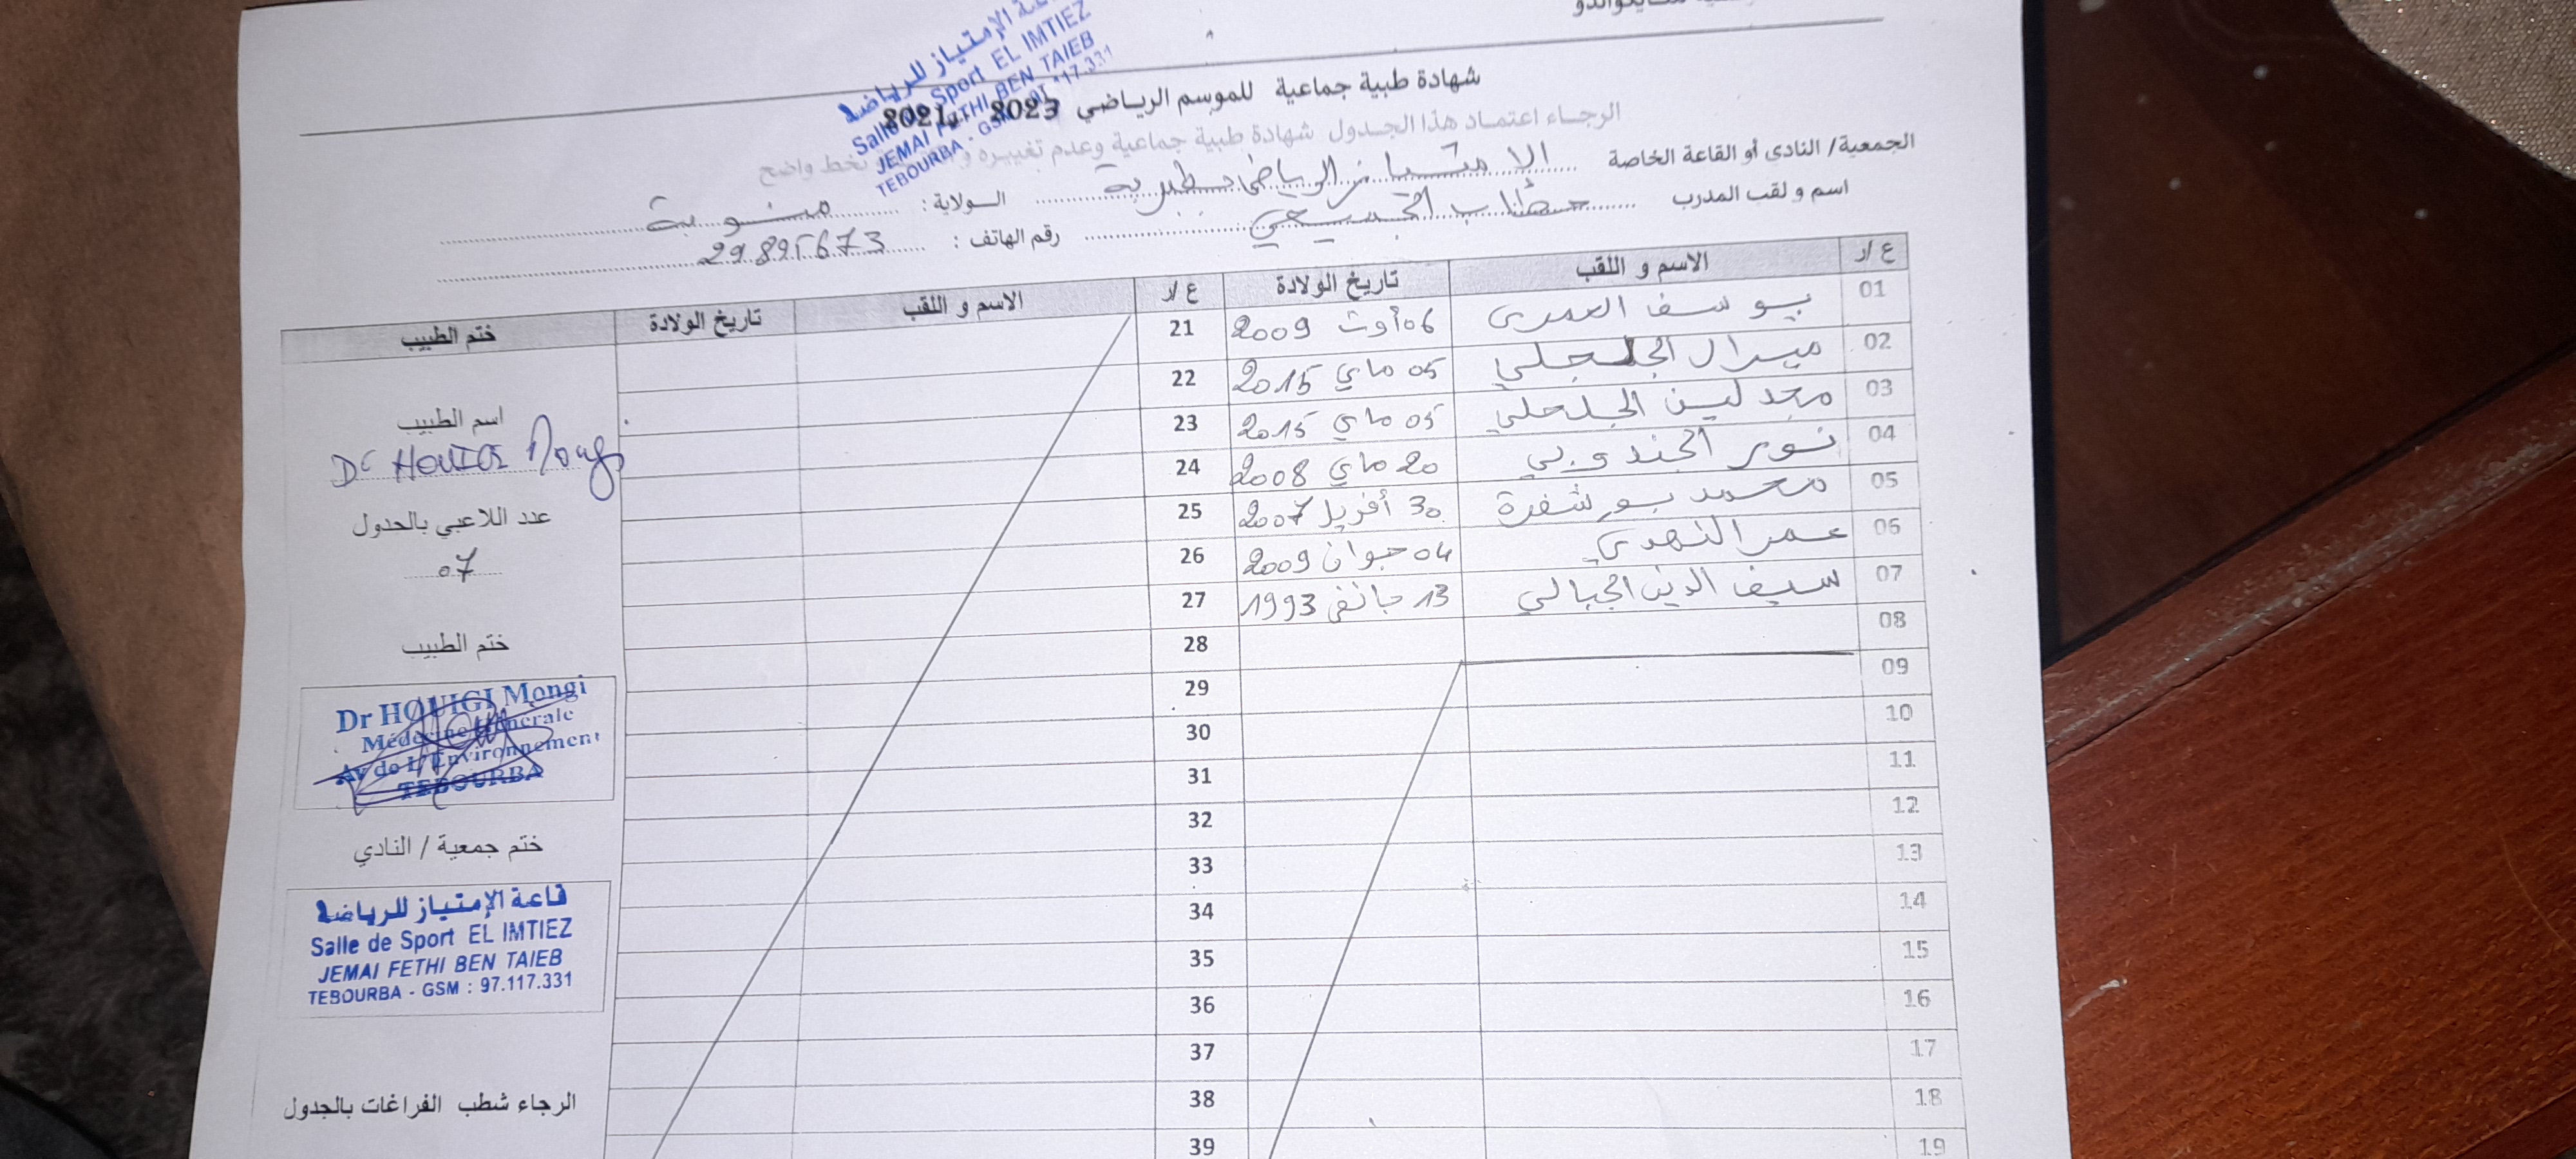 قاعة الإمتياز للرياضة
Salle de Sport EL IMTIEZ
JEMAI FETHI BEN TAIEB
TEBOURBA - GSM : 97.117.331
شهادة طبية جماعية للموسم الرياضي 2023
الرجاء اعتماد هذا الجدول شهادة طبية جماعية وعدم تغييره بخط واضح
الجمعية/ النادي أو القاعة الخاصة الامتياز الرياضي بطبربة الولاية : منوبة
اسم و لقب المدرب خطاب رقم الهاتف : 29895673
ع/ر الاسم و اللقب تاريخ الولادة ع/ر الاسم و اللقب تاريخ الولادة ختم الطبيب
01 يوسف العمري 06 أوت 2009 21
02 ميرال الجلجلي 05 ماي 2015 22
03 مجدلين الجلجلي 05 ماي 2015 23
04 نور الجندوبي 20 ماي 2008 24
05 محمد بوشفرة 30 أفريل 2007 25
06 عمر النهدي 04 جوان 2009 26
07 سيف الدين الجبالي 13 جانفي 1993 27
08 28
09 29
10 30
11 31
12 32
13 33
14 34
15 35
16 36
17 37
18 38
19 39
اسم الطبيب
Dr HOUIGI Mongi
عدد اللاعبي بالجدول
07
ختم الطبيب
Dr HOUIGI Mongi
Médecine Générale
Av de L'Environnement
TEBOURBA
ختم جمعية / النادي
قاعة الإمتياز للرياضة
Salle de Sport EL IMTIEZ
JEMAI FETHI BEN TAIEB
TEBOURBA - GSM : 97.117.331
الرجاء شطب الفراغات بالجدول